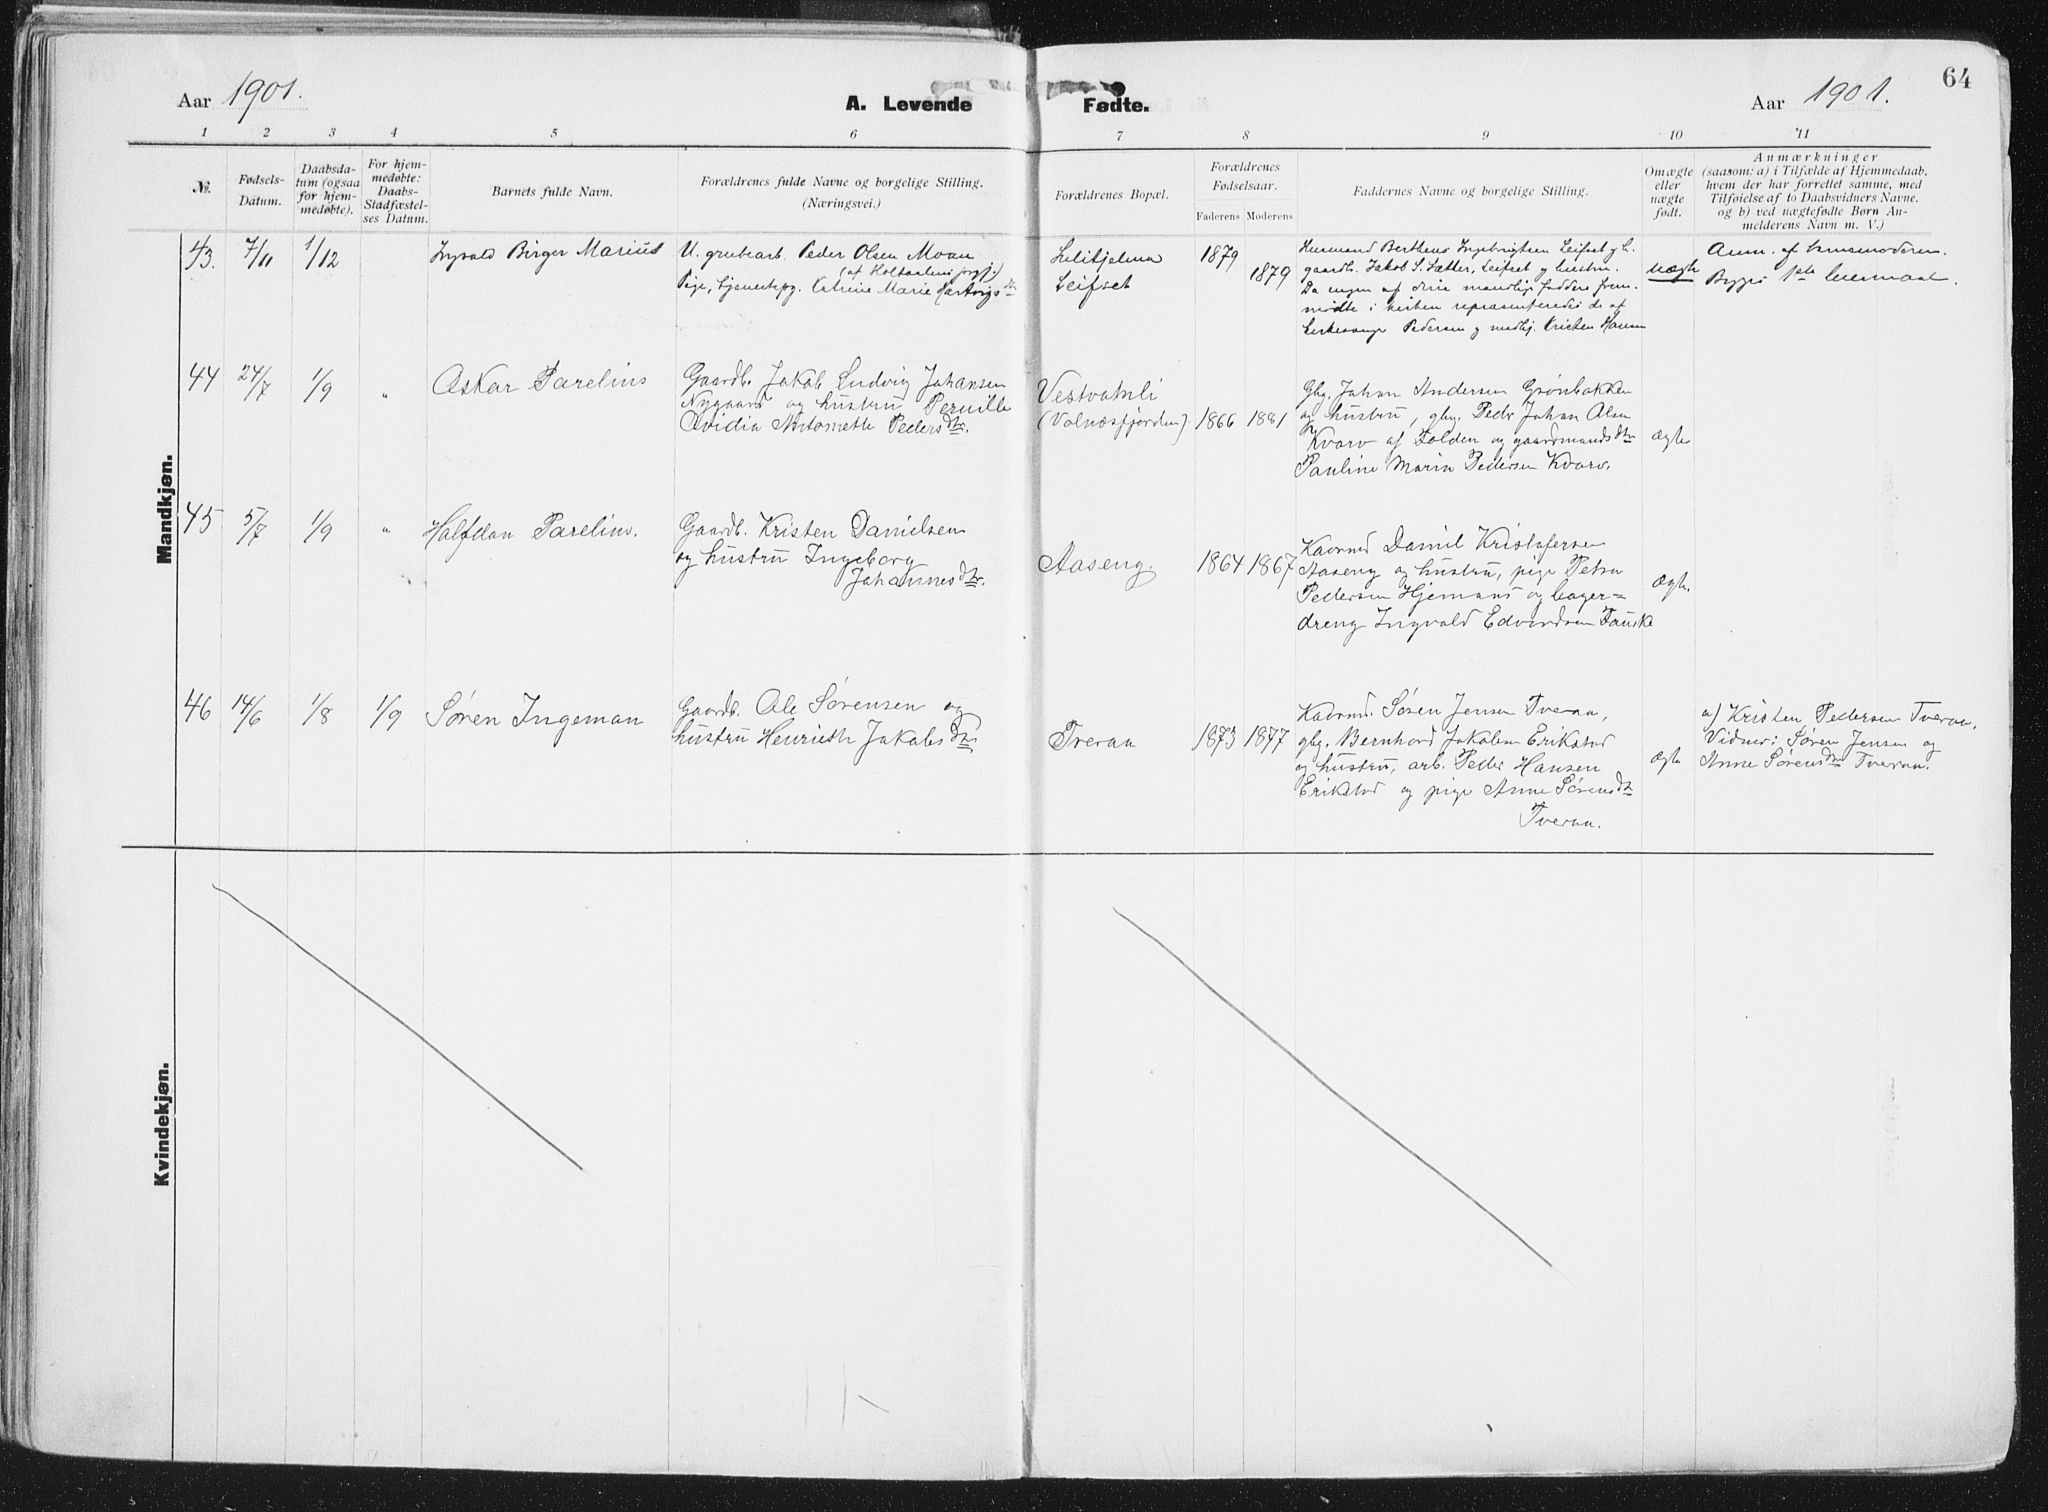 64
Aar 1901.
A. Levende Fødte.
Aar 1901.
1 2 3 4 5 6 7 8 9 10 11
№.
Fødsels-
Datum.
Daabsda-
tum (ogsaa
for hjem-
medøbte).
For hjem-
medøbte:
Daabs-
Stadfæstel-
ses Datum.
Barnets fulde Navn.
Forældrenes fulde Navne og borgelige Stilling.
(Næringsvei.)
Forældrenes Bopæl.
Forældrenes
Fødselsaar.
Faderens Moderens
Faddernes Navne og borgelige Stilling.
Omægte
eller
nægte
født.
Anmærkninger
(saasom: a) i Tilfælde af Hjemmedaab,
hvem der har forrettet samme, med
Tilføielse af to Daabsvidners Navne.
og b) ved uægtefødte Børn An-
melderens Navn m. V.)
Mandkjøn.
43. 7/11 1/12
Ingvald Birger Marius
U. grubearb. Peder Olsen Moan
(af Holtaalens prgj.)
Pige, tjenestepg. Catrine Marie Hartvigsdtr
Sulitjelma
Leifset
1879
1879
Husmand Bertheus Ingebrigtsen Leifset g h.
gaardb. Jakob S. Sætter, Leifset g hustru.
Da ingen af disse mandlige faddere frem-
mødte i kirken repræsenteredes de af
kirkesanger Pedersen g medhj. Kristen Hansen
uægte
Anm. af barnemoderen.
Begges 1ste leiermaal.
44 24/7 1/9 "
Oskar Parelius
Gaardb. Jakob Ludvig Johansen
Nygaard og hustru Pernille
Ovidia Antonette Pedersdtr.
Vestvatnli
(Valnæsfjorden).
1866 1881
Gbg. Johan Andersen Grønbakken
og hustru, gbg. Peder Johan Olsen
Kvarv af Folden og gaardmandsdtr
Pauline Maria Pedersen Kvarv.
ægte
45 5/7 1/9 "
Halfdan Parelius.
Gaardb. Kristen Danielsen
og hustru Ingeborg
Johannesdtr.
Aaseng.
1864 1867
Kaarmd Daniel Kristofersen
Aaseng og hustru, pige Petra
Pedersen Hjemaas og bager-
dreng Ingvald Edvardsen Fauske
ægte.
46 14/6 1/8 1/9
Søren Ingeman
Gaardb. Ole Sørensen og
hustru Henriette Jakobsdtr
Tveraa
1873 1877
Kaarmd. Søren Jensen Tveraa,
gbg. Bernhard Jakobsen Erikstad
og hustru, arb. Peder Hansen
Erikstad og pige Anne Sørensdtr
Tveraa.
ægte
a) Kristen Pedersen Tveraa.
Vidner: Søren Jensen og
Anne Sørensdtr Tveraa.
Kvindekjøn.